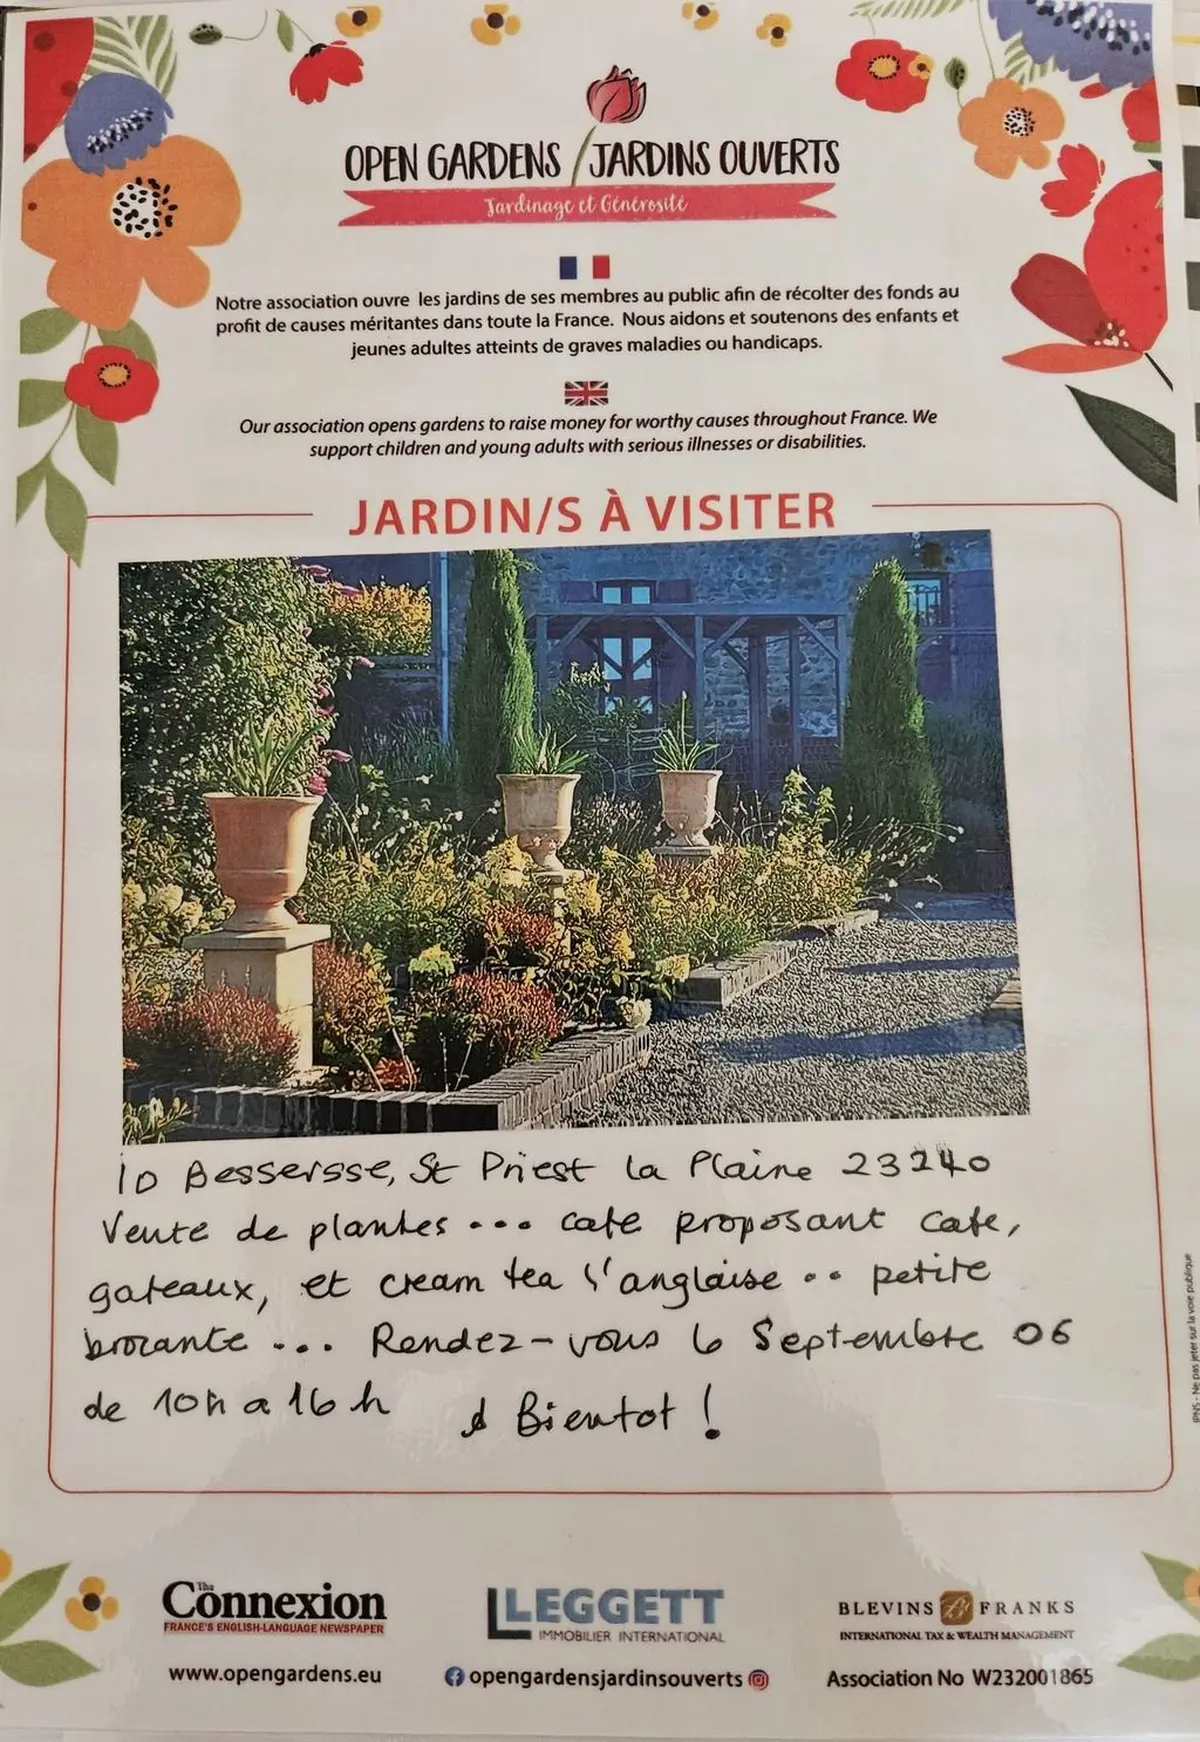 OPEN GARDENS JARDINS OUVERTS
Jardinage et Générosité
Notre association ouvre les jardins de ses membres au public afin de récolter des fonds au
profit de causes méritantes dans toute la France. Nous aidons et soutenons des enfants et
jeunes adultes atteints de graves maladies ou handicaps.
Our association opens gardens to raise money for worthy causes throughout France. We
support children and young adults with serious illnesses or disabilities.
JARDIN/S À VISITER
10 Bessersse, St Priest la Plaine 23240
Vente de plantes ... cafe proposant cafe,
gateaux, et cream tea l'anglaise .. petite
brocante ... Rendez-vous le Septembre 06
de 10h a 16h à Bientot !
IPNS - Ne pas jeter sur la voie publique
The Connexion
FRANCE'S ENGLISH-LANGUAGE NEWSPAPER
LEGGETT
IMMOBILIER INTERNATIONAL
BLEVINS BF FRANKS
INTERNATIONAL TAX & WEALTH MANAGEMENT
www.opengardens.eu
opengardensjardinsouverts
Association No W232001865